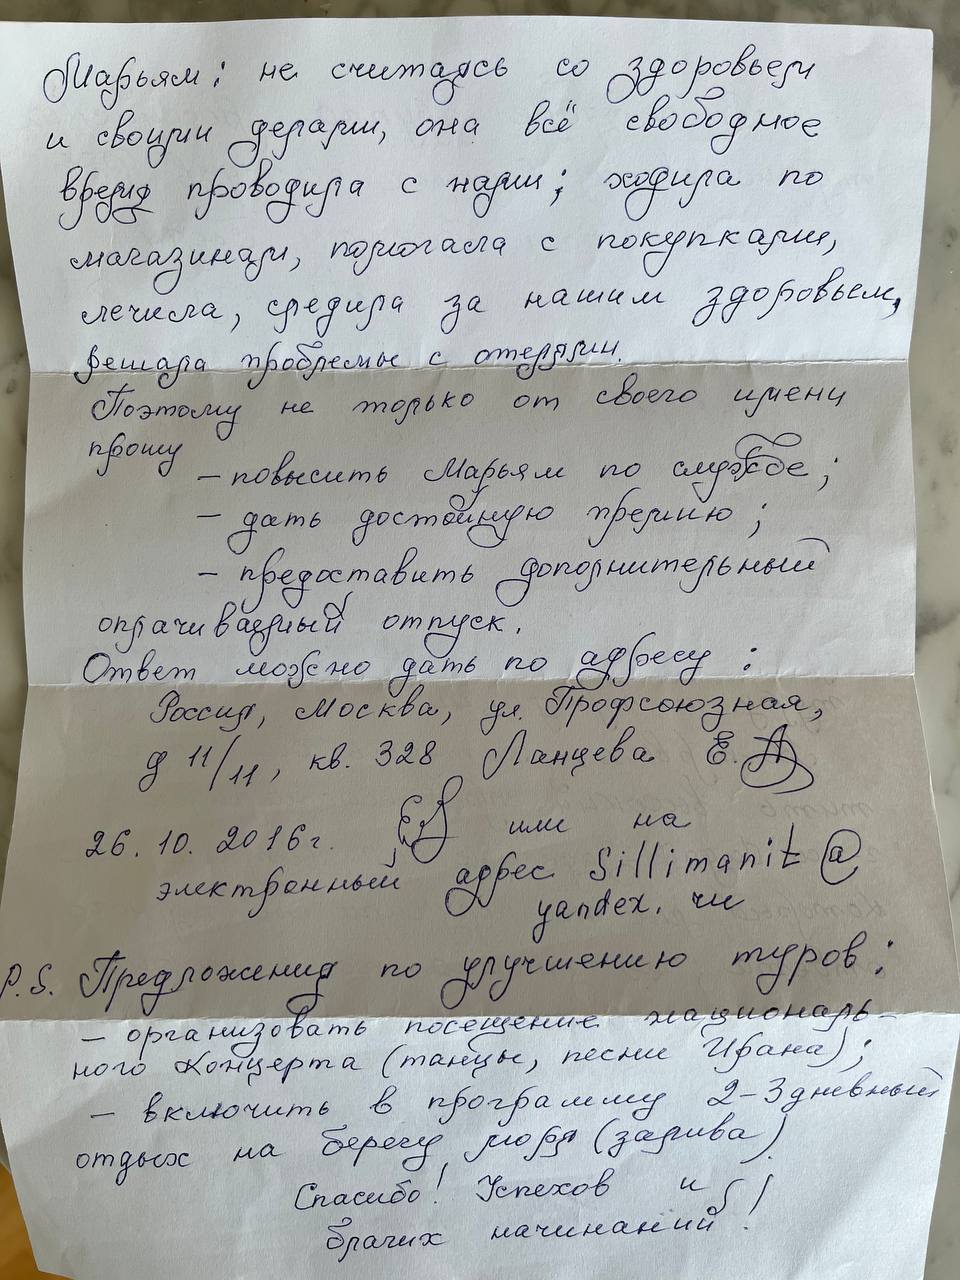 Марьям: не считаясь со здоровьем
и своими делами, она всё свободное
время проводила с нами; ходила по
магазинам, помогала с покупками,
лечила, следила за нашим здоровьем,
решала проблемы с отелями.
Поэтому не только от своего имени
прошу
– повысить Марьям по службе;
– дать достойную премию;
– предоставить дополнительный
оплачиваемый отпуск.
Ответ можно дать по адресу:
Россия, Москва, ул. Профсоюзная,
д 11/11, кв. 328 Ланцева Е.А
26.10.2016г. или на
электронный адрес Sillimanit@
yandex.ru
P.S. Предложения по улучшению туров:
– организовать посещение националь-
ного концерта (танцы, песни Ирана);
– включить в программу 2-3дневный
отдых на берегу моря (залива)
Спасибо! Успехов и
благих начинаний!